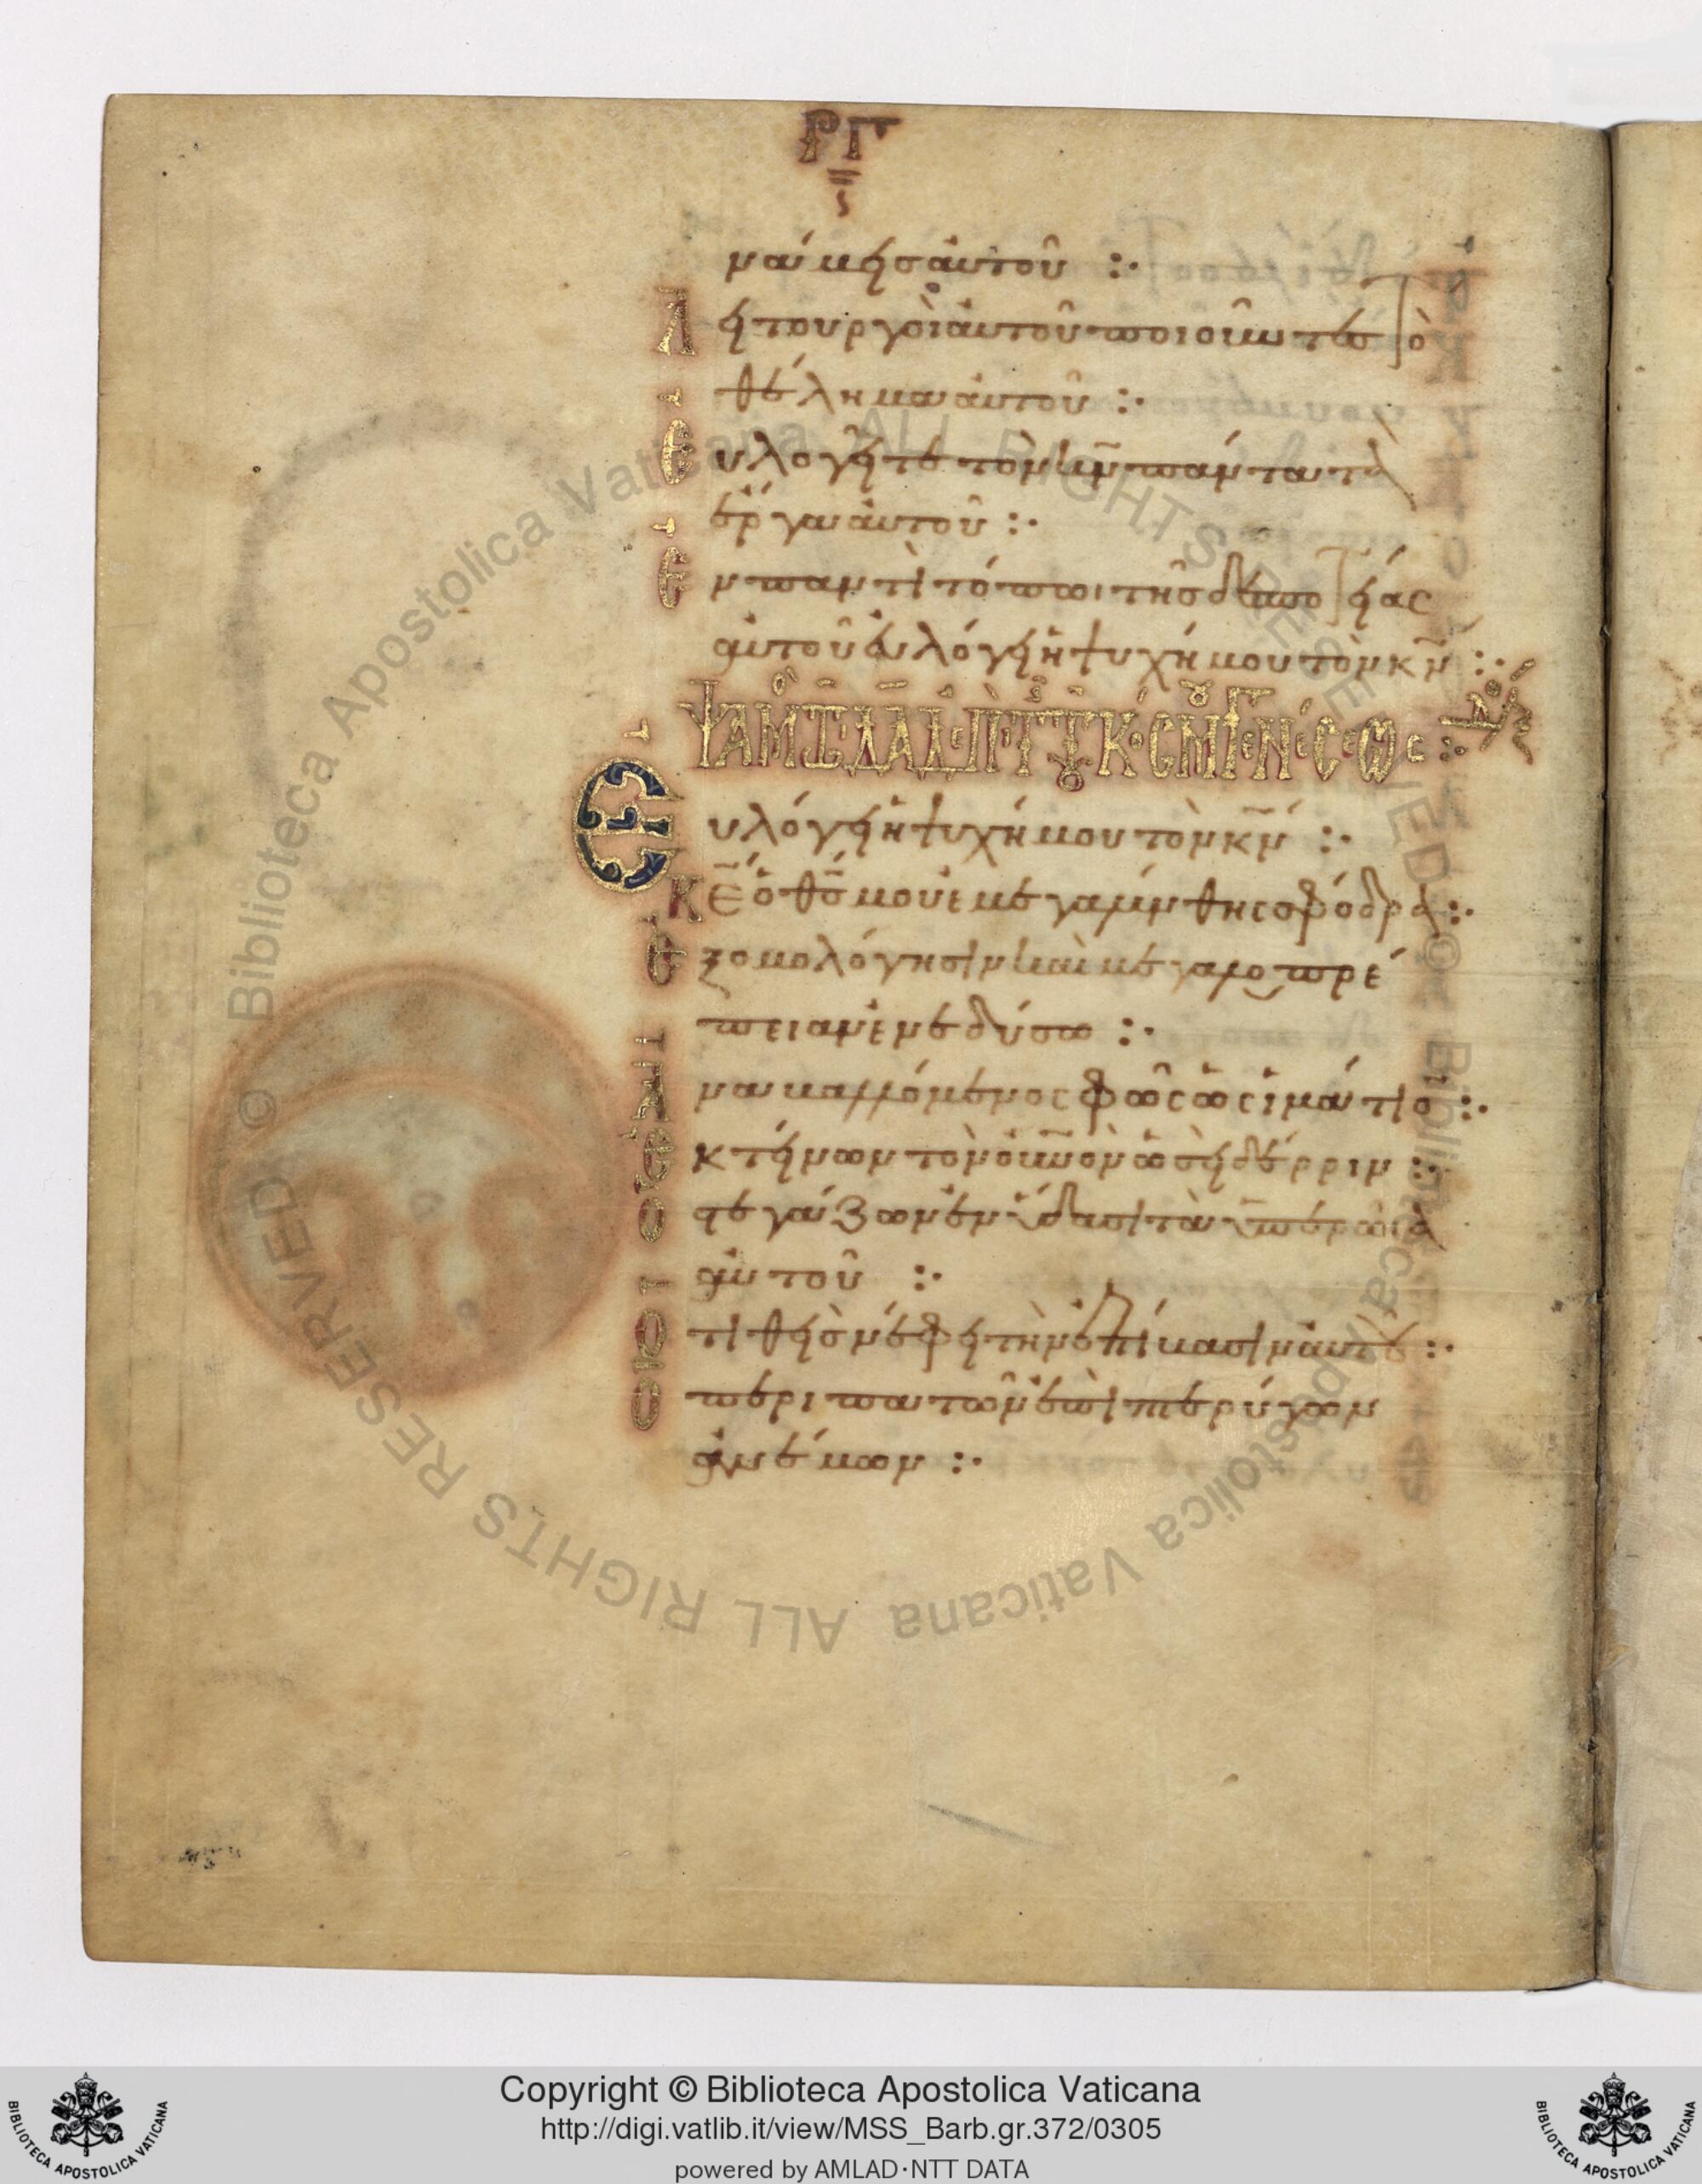 ΡΓ
νάμεις αὐτοῦ :·
Λ ειτουργοὶ αὐτοῦ ποιοῦντες τὸ
θέλημα αὐτοῦ :·
Ε υλογεῖτε τὸν κν̄ πάντα τὰ
ἔργα αὐτοῦ :·
Ε ν παντὶ τόπωι τῆς δεσποτείας
αὐτοῦ εὐλόγει ἡ ψυχή μου τὸν κν̄ :·
Ε υλόγει ἡ ψυχή μου τὸν κν̄ :·
Κ ε̄ ὁ θς̄ μου ἐμεγαλύνθης σφόδρα :·
Ε ξομολόγησιν καὶ μεγαλοπρέ
πειαν ἐνεδύσω :·
Α ναβαλλόμενος φῶς ὡς ἱμάτιον :·
Ε κτείνων τὸν οὐνὸν ὡσεὶ δέρριν :·
Ο στεγάζων ἐν ὕδασι τὰ ὑπερῶια
αὐτοῦ :·
Ο τιθεὶς νέφει τὴν ἐπίβασιν αὐτοῦ :·
Ο περιπατῶν ἐπὶ πτερύγων
ἀνέμων :·
Copyright © Biblioteca Apostolica Vaticana
http://digi.vatlib.it/view/MSS_Barb.gr.372/0305
powered by AMLAD·NTT DATA
BIBLIOTECA APOSTOLICA VATICANA
BIBLIOTECA APOSTOLICA VATICANA
© Biblioteca Apostolica Vaticana ALL RIGHTS RESERVED
© Biblioteca Apostolica Vaticana ALL RIGHTS RESERVED